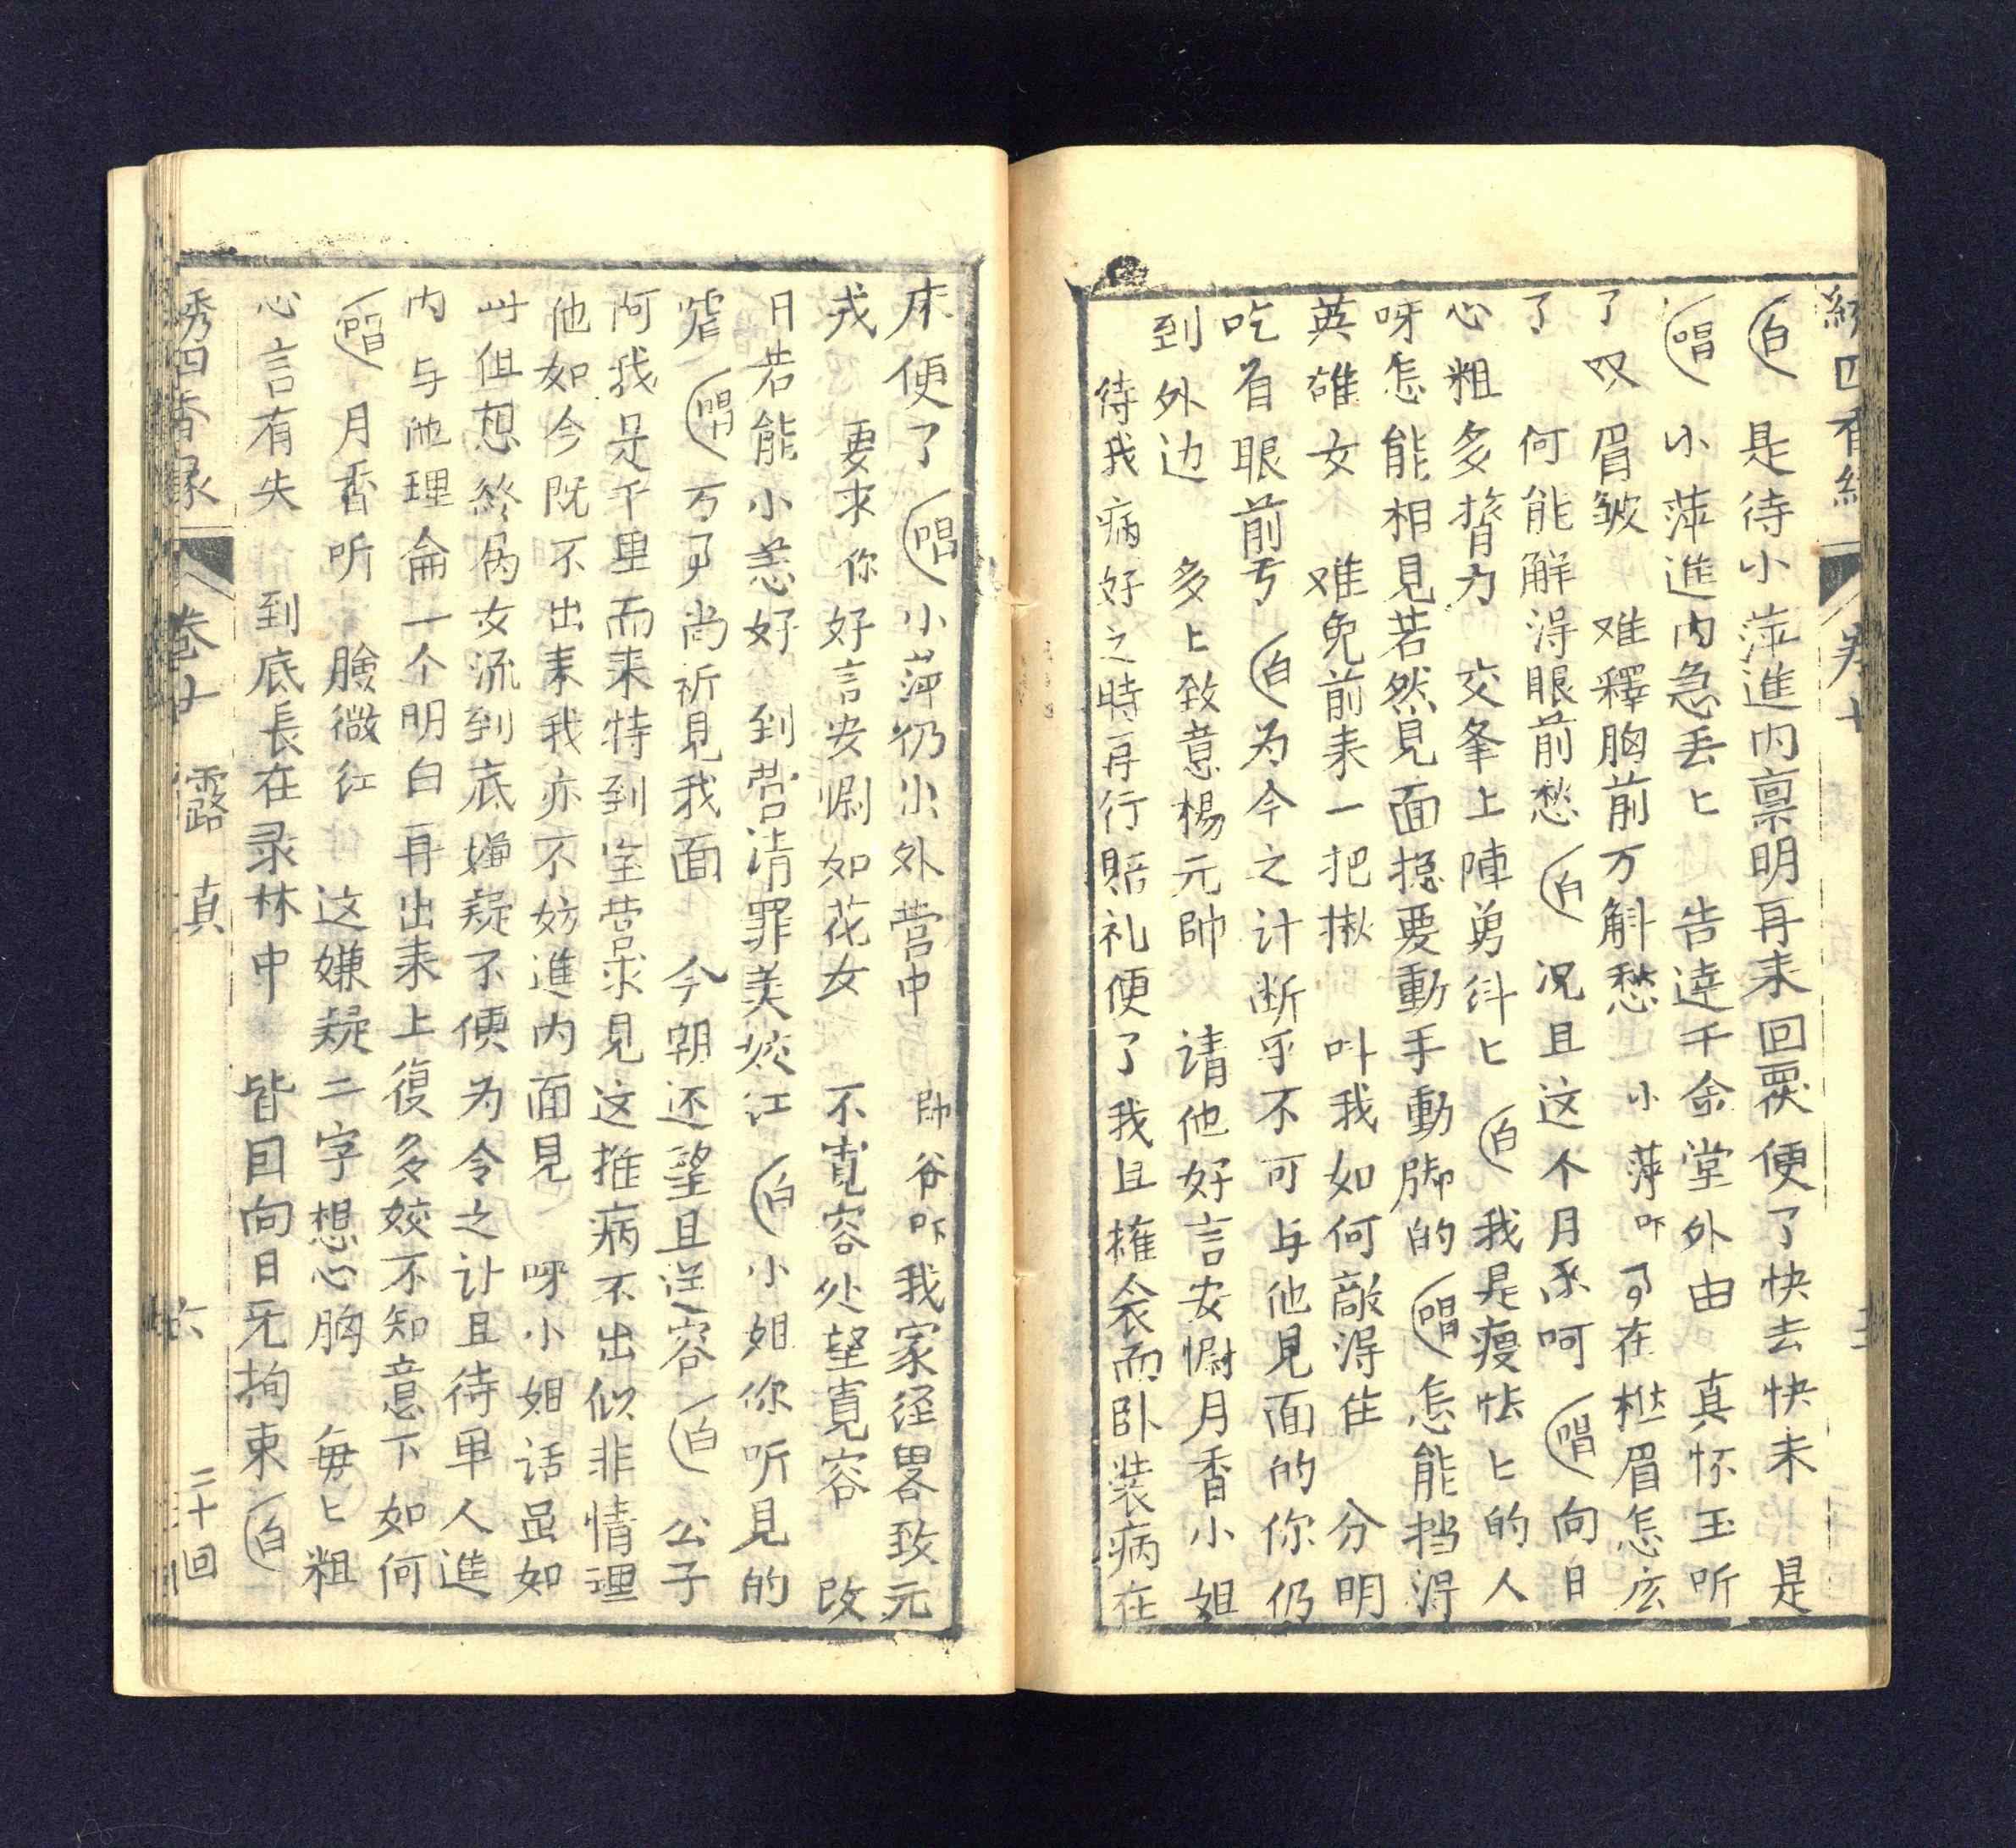 白 是待小萍進内禀明再来回覆便了快去快来 是
唱 小萍進内急丢匕 告達千余堂外由 真怀玉听
了 叹眉皱 难釋胸前万斛愁 小萍吓 在 眉怎庅
了 何能解得眼前愁 白 况且这个月 呵 唱 向日
心粗多膂力 交峯上陣勇纠匕 白 我是瘦怯匕的人
呀怎能相見若然見面揌要動手動脚的 唱 怎能挡得
英雄女 难免前来一把揪 叫我如何敵得住 分明
吃眼前亏 白 为今之计断乎不可与他見面的你仍
到外边 多上致意楊元帥 请他好言安慰月香小姐
待我病好之時再行賠礼便了我且擁衾而卧装病在
床便了 唱 小萍仍出外营中 帥爷吓我家径畧致元
戎 要求你好言安慰如花女 不寛容处望寛容 改
日若能小恙好 到营清罪美姣江 白 小姐你听見的
唱 尚祈見我面 今朝还望且 容 白 公子
阿我是千里而来特到宝营求見这推病不出似非情理
他如今既不出来我亦不妨進内面見 呀小姐话虽如
此但想終为女流到底嫌疑不便为今之计且待单人進
内与他理侖一个明白再出来上復多姣不知意下如何
唱 月香听 臉微红 这嫌疑二字想心胸 每匕粗
心言有失 到底長在录林中 皆因向日无拘束 白
绣四香录 卷廿 露真 六 二十回